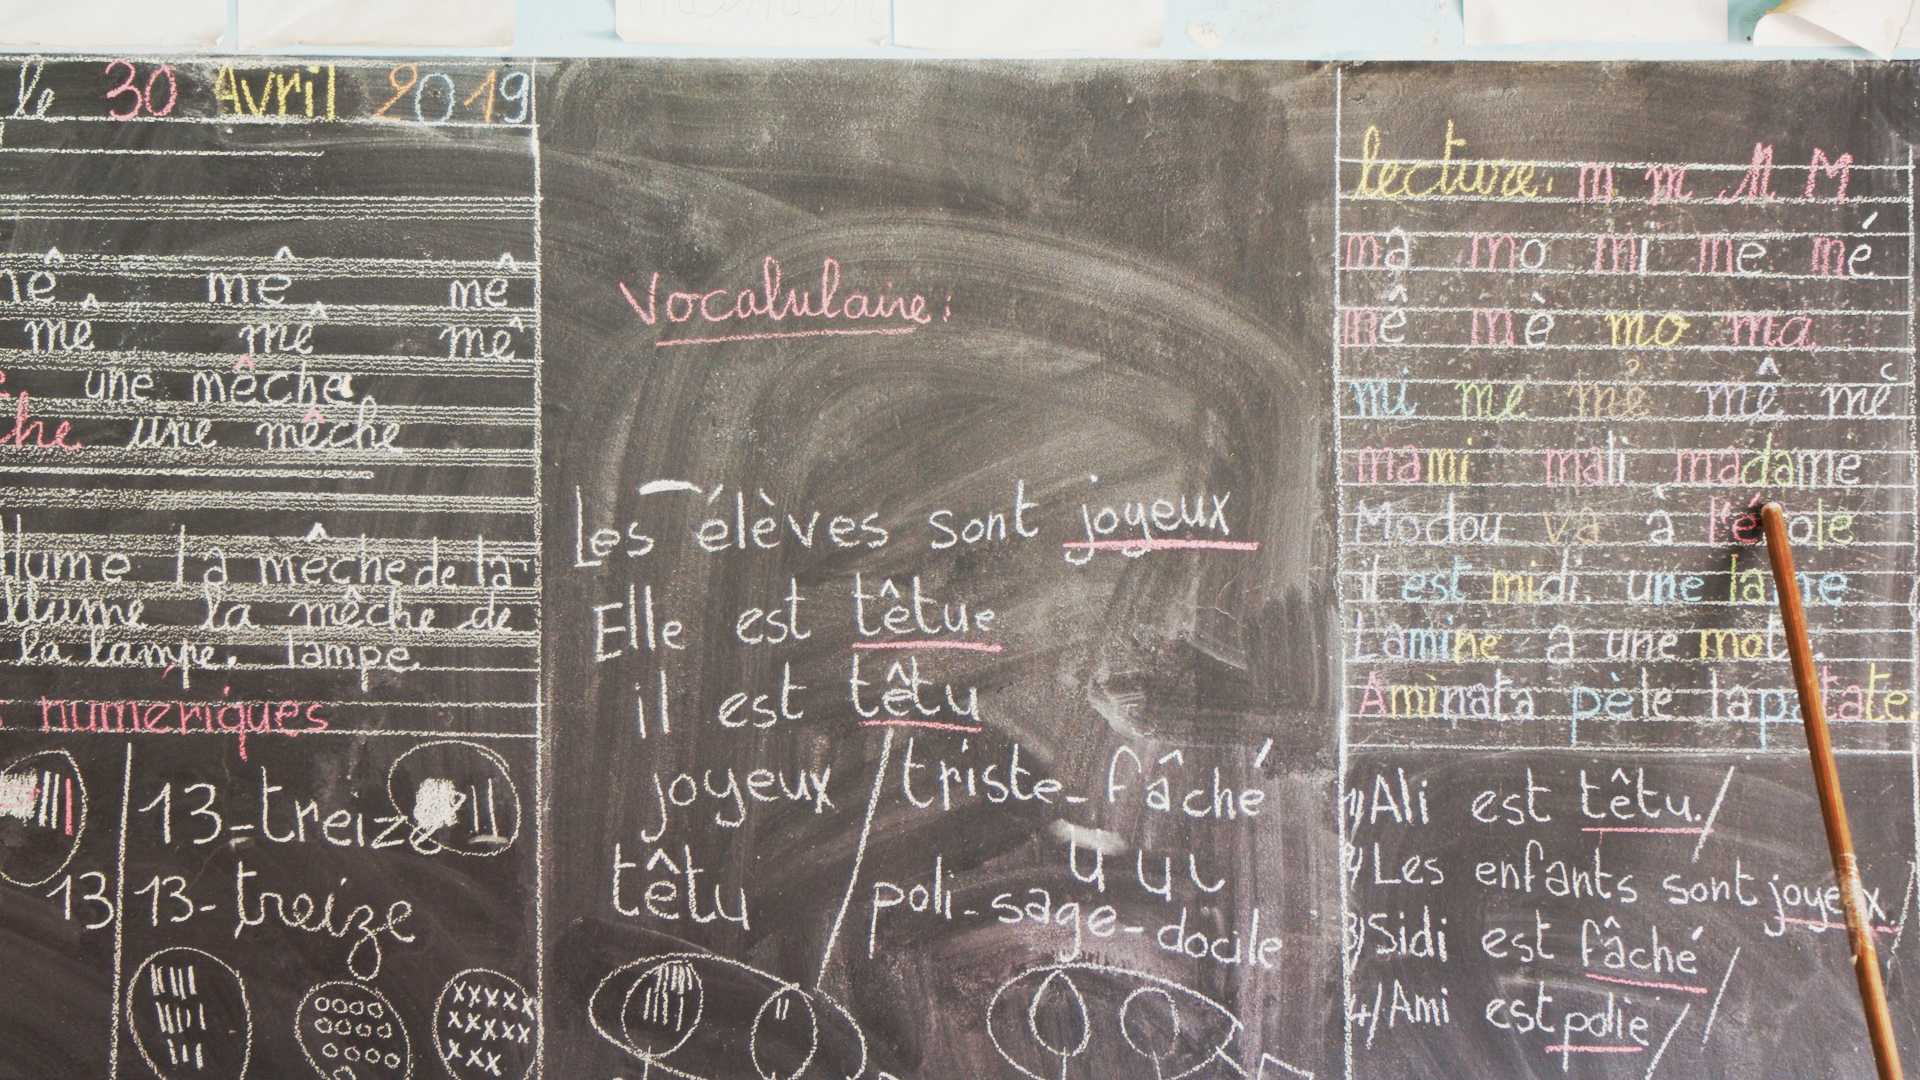 le 30 Avril 2019
mê mê mê
mê mê mê
une mêche
che une mêche
llume la mêche de la
llume la mêche de
la lampe. lampe
numériques
13-treize
13 13-treize
Vocabulaire:
Les élèves sont joyeux
Elle est têtue
il est têtu
joyeux / triste - fâché
têtu / poli - sage - docile
lecture: m m M M
mâ mo mi me mé
mê mè mo ma
mi me mê mè
mami mali madame
Modou va à l'école
il est midi. une lame
Lamine a une
Aminata pèle la patate.
1/ Ali est têtu. /
2/ Les enfants sont joyeux. /
3/ Sidi est fâché /
4/ Ami est polie /